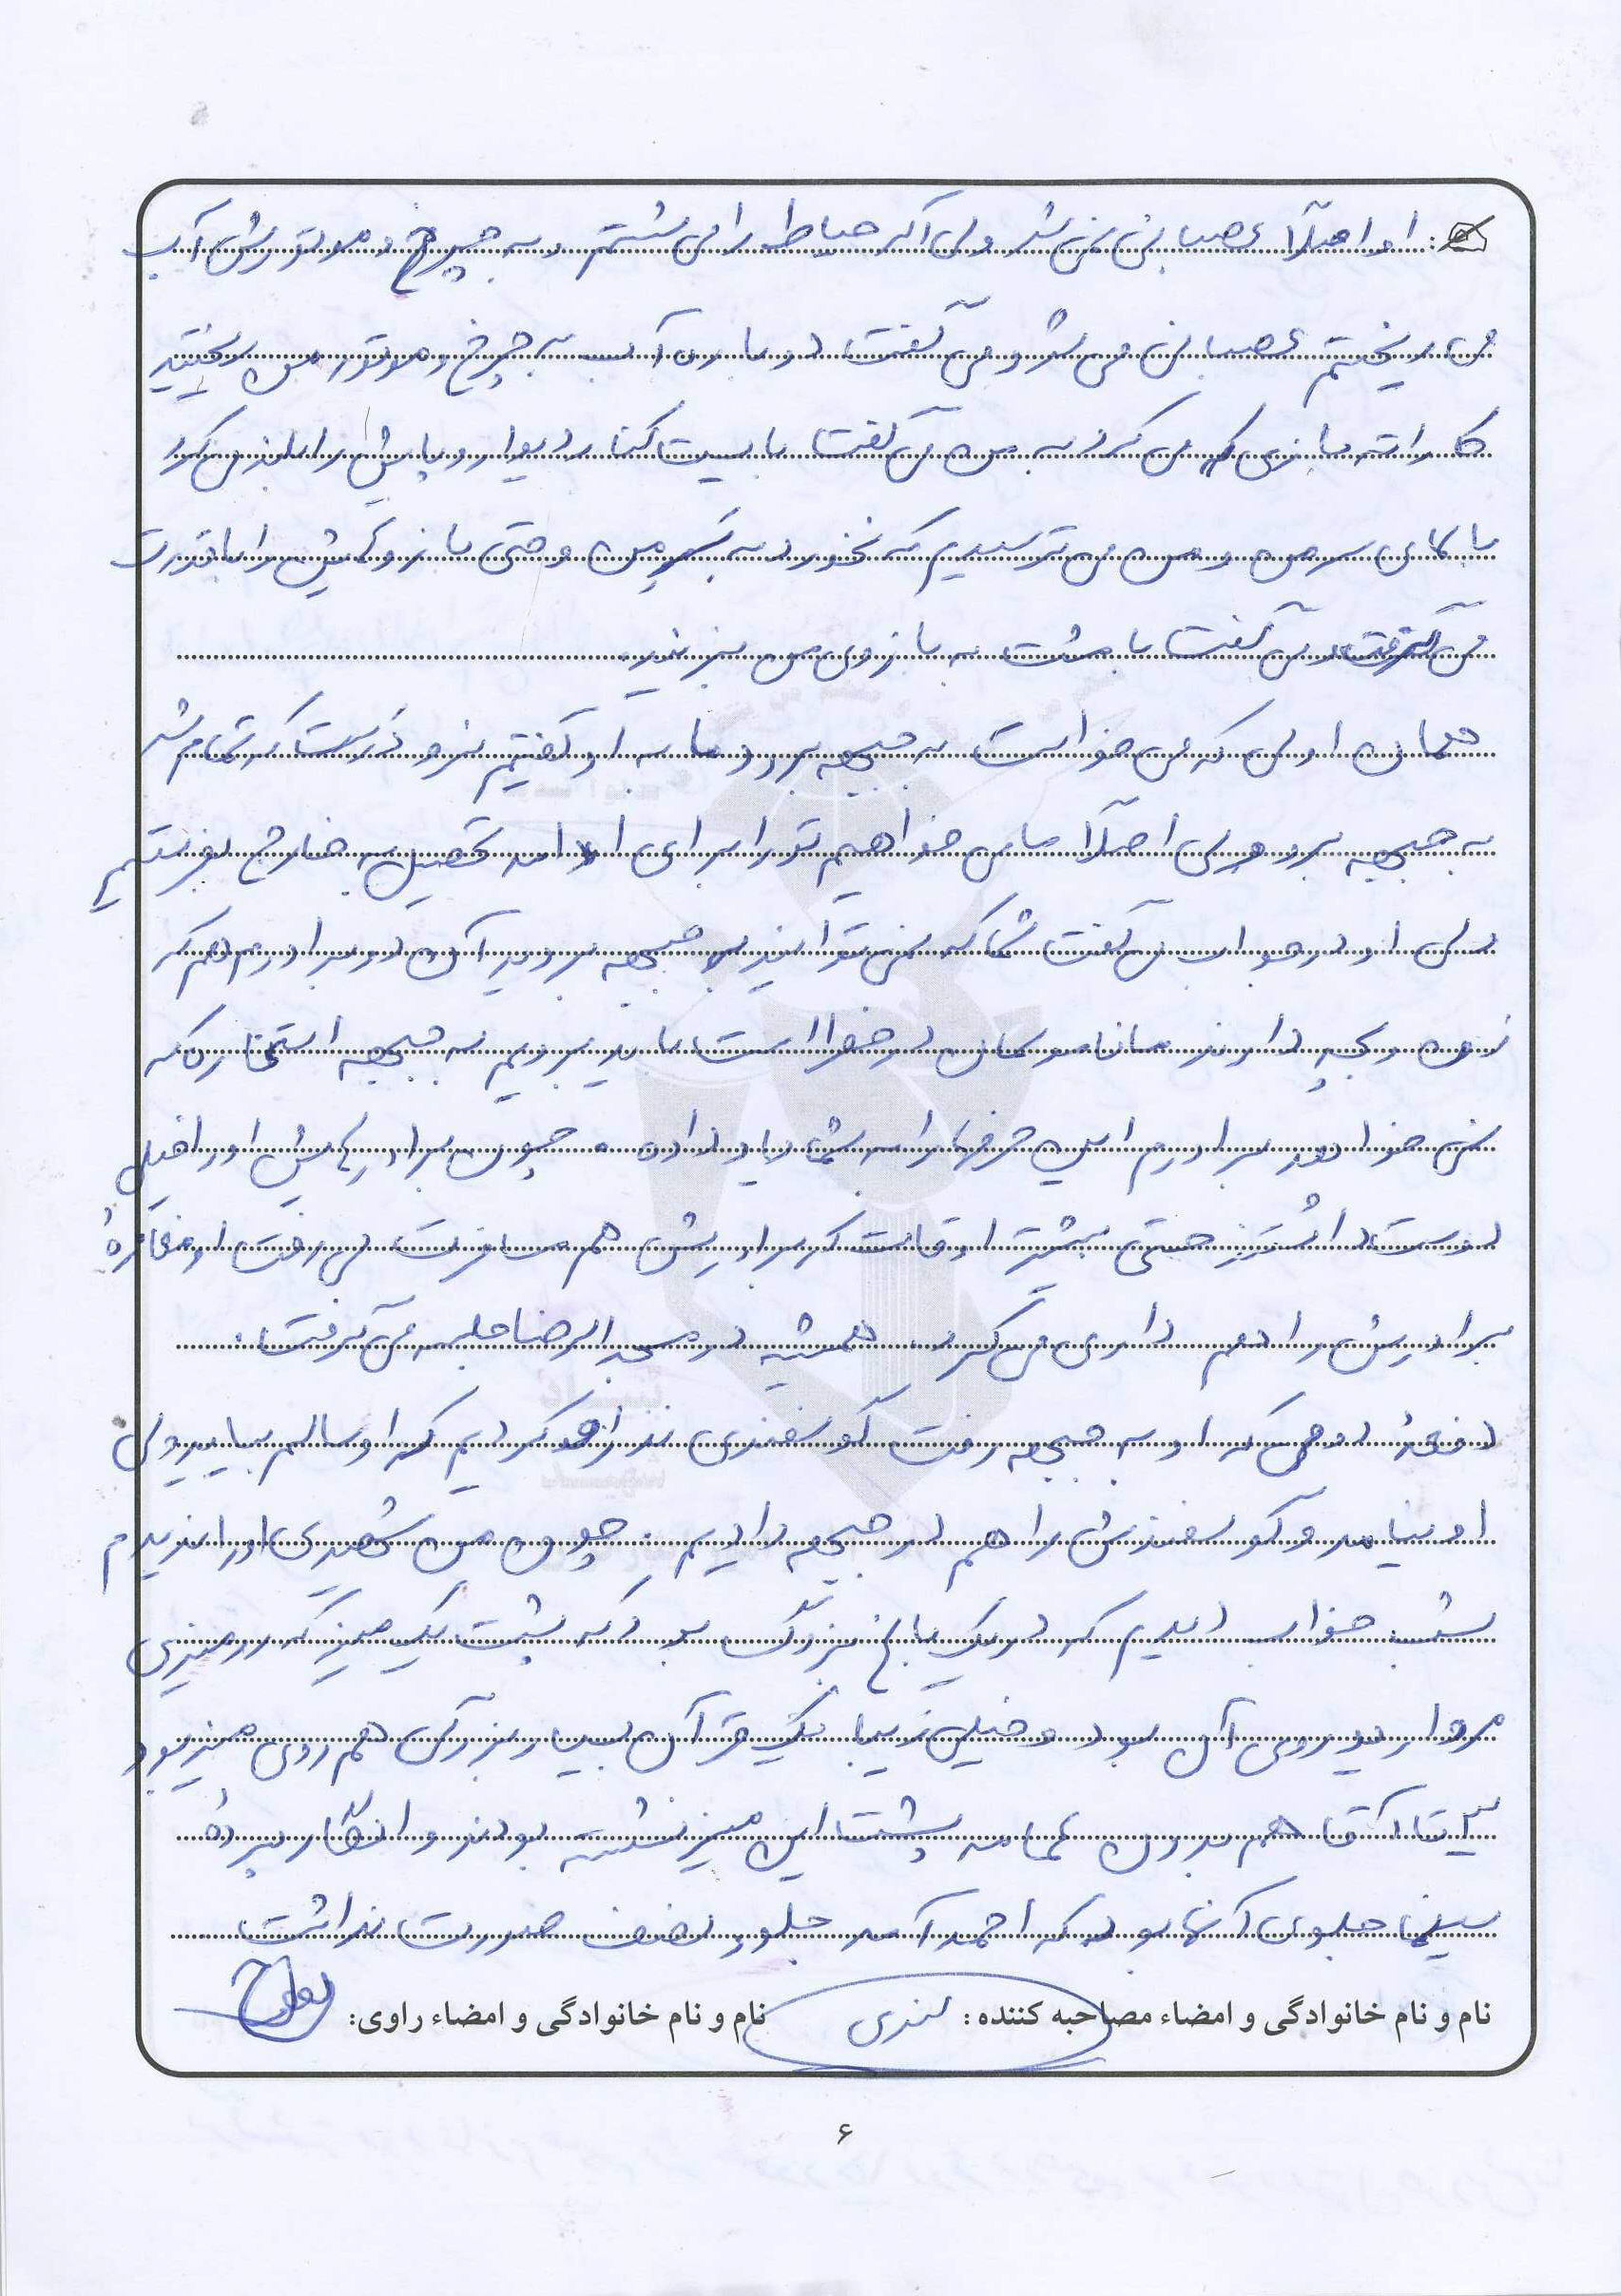 او اصلاً عصبانی نمی شد ولی اگر حیاط را می شستم و به چرخ و موتورش آب
می ریختم عصبانی می شد و می گفت دوباره آب به چرخ و موتور من ریختید
کاراته بازی که می کرد به من می گفت بایست کنار دیوار و پایش را بلند می کرد
بالای سر من و من می ترسیدم که نخورد به سر من و حتی بازوهایش را با قدرت
می گرفت و می گفت با مشت به بازوی من بزنید.
همان اولی که می خواست به جبهه برود ما به او گفتیم نرو درست که تمام شد
به جبهه برو ولی اصلاً ما می خواهیم تو را برای ادامه تحصیل به خارج بفرستیم
ولی او در جواب می گفت شما که نمی توانید به جبهه بروید آن دو برادرم هم که
زن و بچه دارند ما ناموسمان در خطر است باید برویم به جبهه استخاره که
نمی خواهد برادرم این حرفها را به شما یاد داده. چون برادرهایش او را خیلی
دوست داشتند حتی بیشتر اوقات که برادرش هم مسافرت می رفت او مغازهٔ
برادرش را هم داری می کرد. همیشه در مسجد الرضا جلسه می گرفت.
دفعهٔ دومی که او به جبهه رفت گوسفندی نذر کردیم که او سالم بیاید ولی
او نیامد و گوسفندش را هم در جبهه دادیم. چون من شهیدی او را ندیدم
شب خواب دیدم که در یک باغ بزرگ بود که پشت یک میز که رومیزی
مروارید روی آن بود و خیلی زیبا یک قرآن بسیار بزرگی هم روی میز بود
۳ تا آقا هم بدون عمامه پشت این میز نشسته بودند و انگار پردهٔ
سینما جلوی آنها بود که احمد آمد جلو نصف صورت نداشت
نام و نام خانوادگی و امضاء مصاحبه کننده: نام و نام خانوادگی و امضاء راوی:
۶